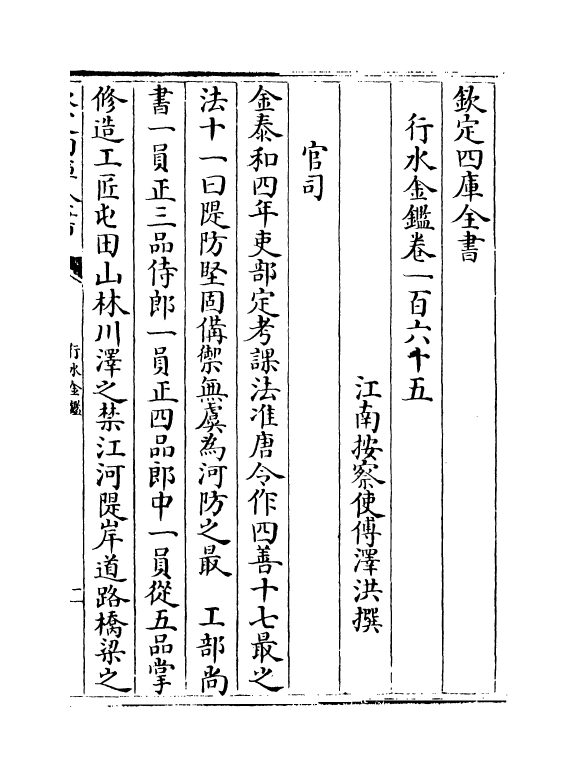 欽定四庫全書
行水金鑑卷一百六十五
江南按察使傅澤洪撰
官司
金泰和四年吏部定考課法准唐令作四善十七最之
法十一曰隄防堅固備禦無虞為河防之最　工部尚
書一員正三品侍郎一員正四品郎中一員從五品掌
修造工匠屯田山林川澤之禁江河隄岸道路橋梁之
行水金鑑